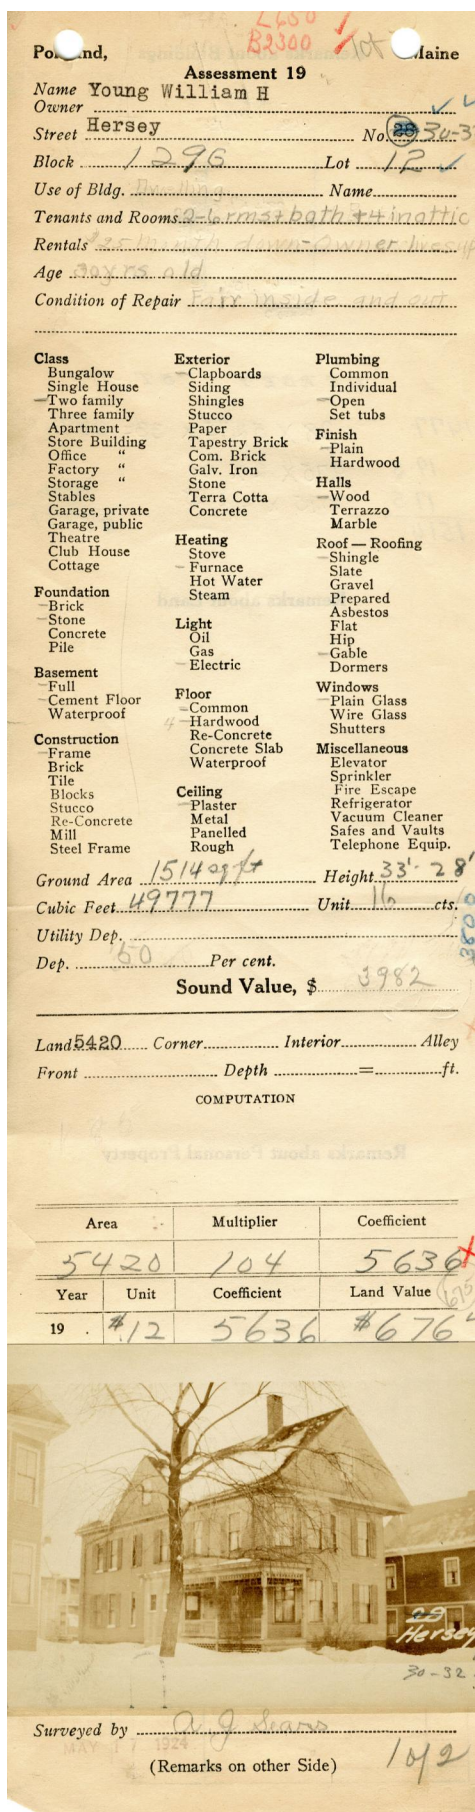 L650
B2300 lot
Portland, Maine
Assessment 19
Name Young William H
Owner
Street Hersey No. 28 30-3
Block 129G Lot 12
Use of Bldg. Dwelling Name
Tenants and Rooms 2-6 rms+bath + 4 in attic
Rentals $25 Month down-Owner lives up
Age 30yrs old
Condition of Repair Fair inside and out
Class
Bungalow
Single House
Two family
Three family
Apartment
Store Building
Office "
Factory "
Storage "
Stables
Garage, private
Garage, public
Theatre
Club House
Cottage
Foundation
Brick
Stone
Concrete
Pile
Basement
Full
Cement Floor
Waterproof
Construction
Frame
Brick
Tile
Blocks
Stucco
Re-Concrete
Mill
Steel Frame
Exterior
Clapboards
Siding
Shingles
Stucco
Paper
Tapestry Brick
Com. Brick
Galv. Iron
Stone
Terra Cotta
Concrete
Heating
Stove
Furnace
Hot Water
Steam
Light
Oil
Gas
Electric
Floor
Common
4 Hardwood
Re-Concrete
Concrete Slab
Waterproof
Ceiling
Plaster
Metal
Panelled
Rough
Plumbing
Common
Individual
Open
Set tubs
Finish
Plain
Hardwood
Halls
Wood
Terrazzo
Marble
Roof — Roofing
Shingle
Slate
Gravel
Prepared
Asbestos
Flat
Hip
Gable
Dormers
Windows
Plain Glass
Wire Glass
Shutters
Miscellaneous
Elevator
Sprinkler
Fire Escape
Refrigerator
Vacuum Cleaner
Safes and Vaults
Telephone Equip.
Ground Area 1514 sq ft Height 33'-28'
Cubic Feet 49777 Unit 16 cts.
3800
Utility Dep.
Dep. 50 Per cent.
Sound Value, $ 3982
Land 5420 Corner Interior Alley
Front Depth = ft.
COMPUTATION
Remarks about Personal Property
Area Multiplier Coefficient
5420 104 5636
Year Unit Coefficient Land Value 675
19 . $.12 5636 $676
29
Hersey
30-32
Surveyed by A J Sears
MAY 17 1924
(Remarks on other Side) 1 of 2